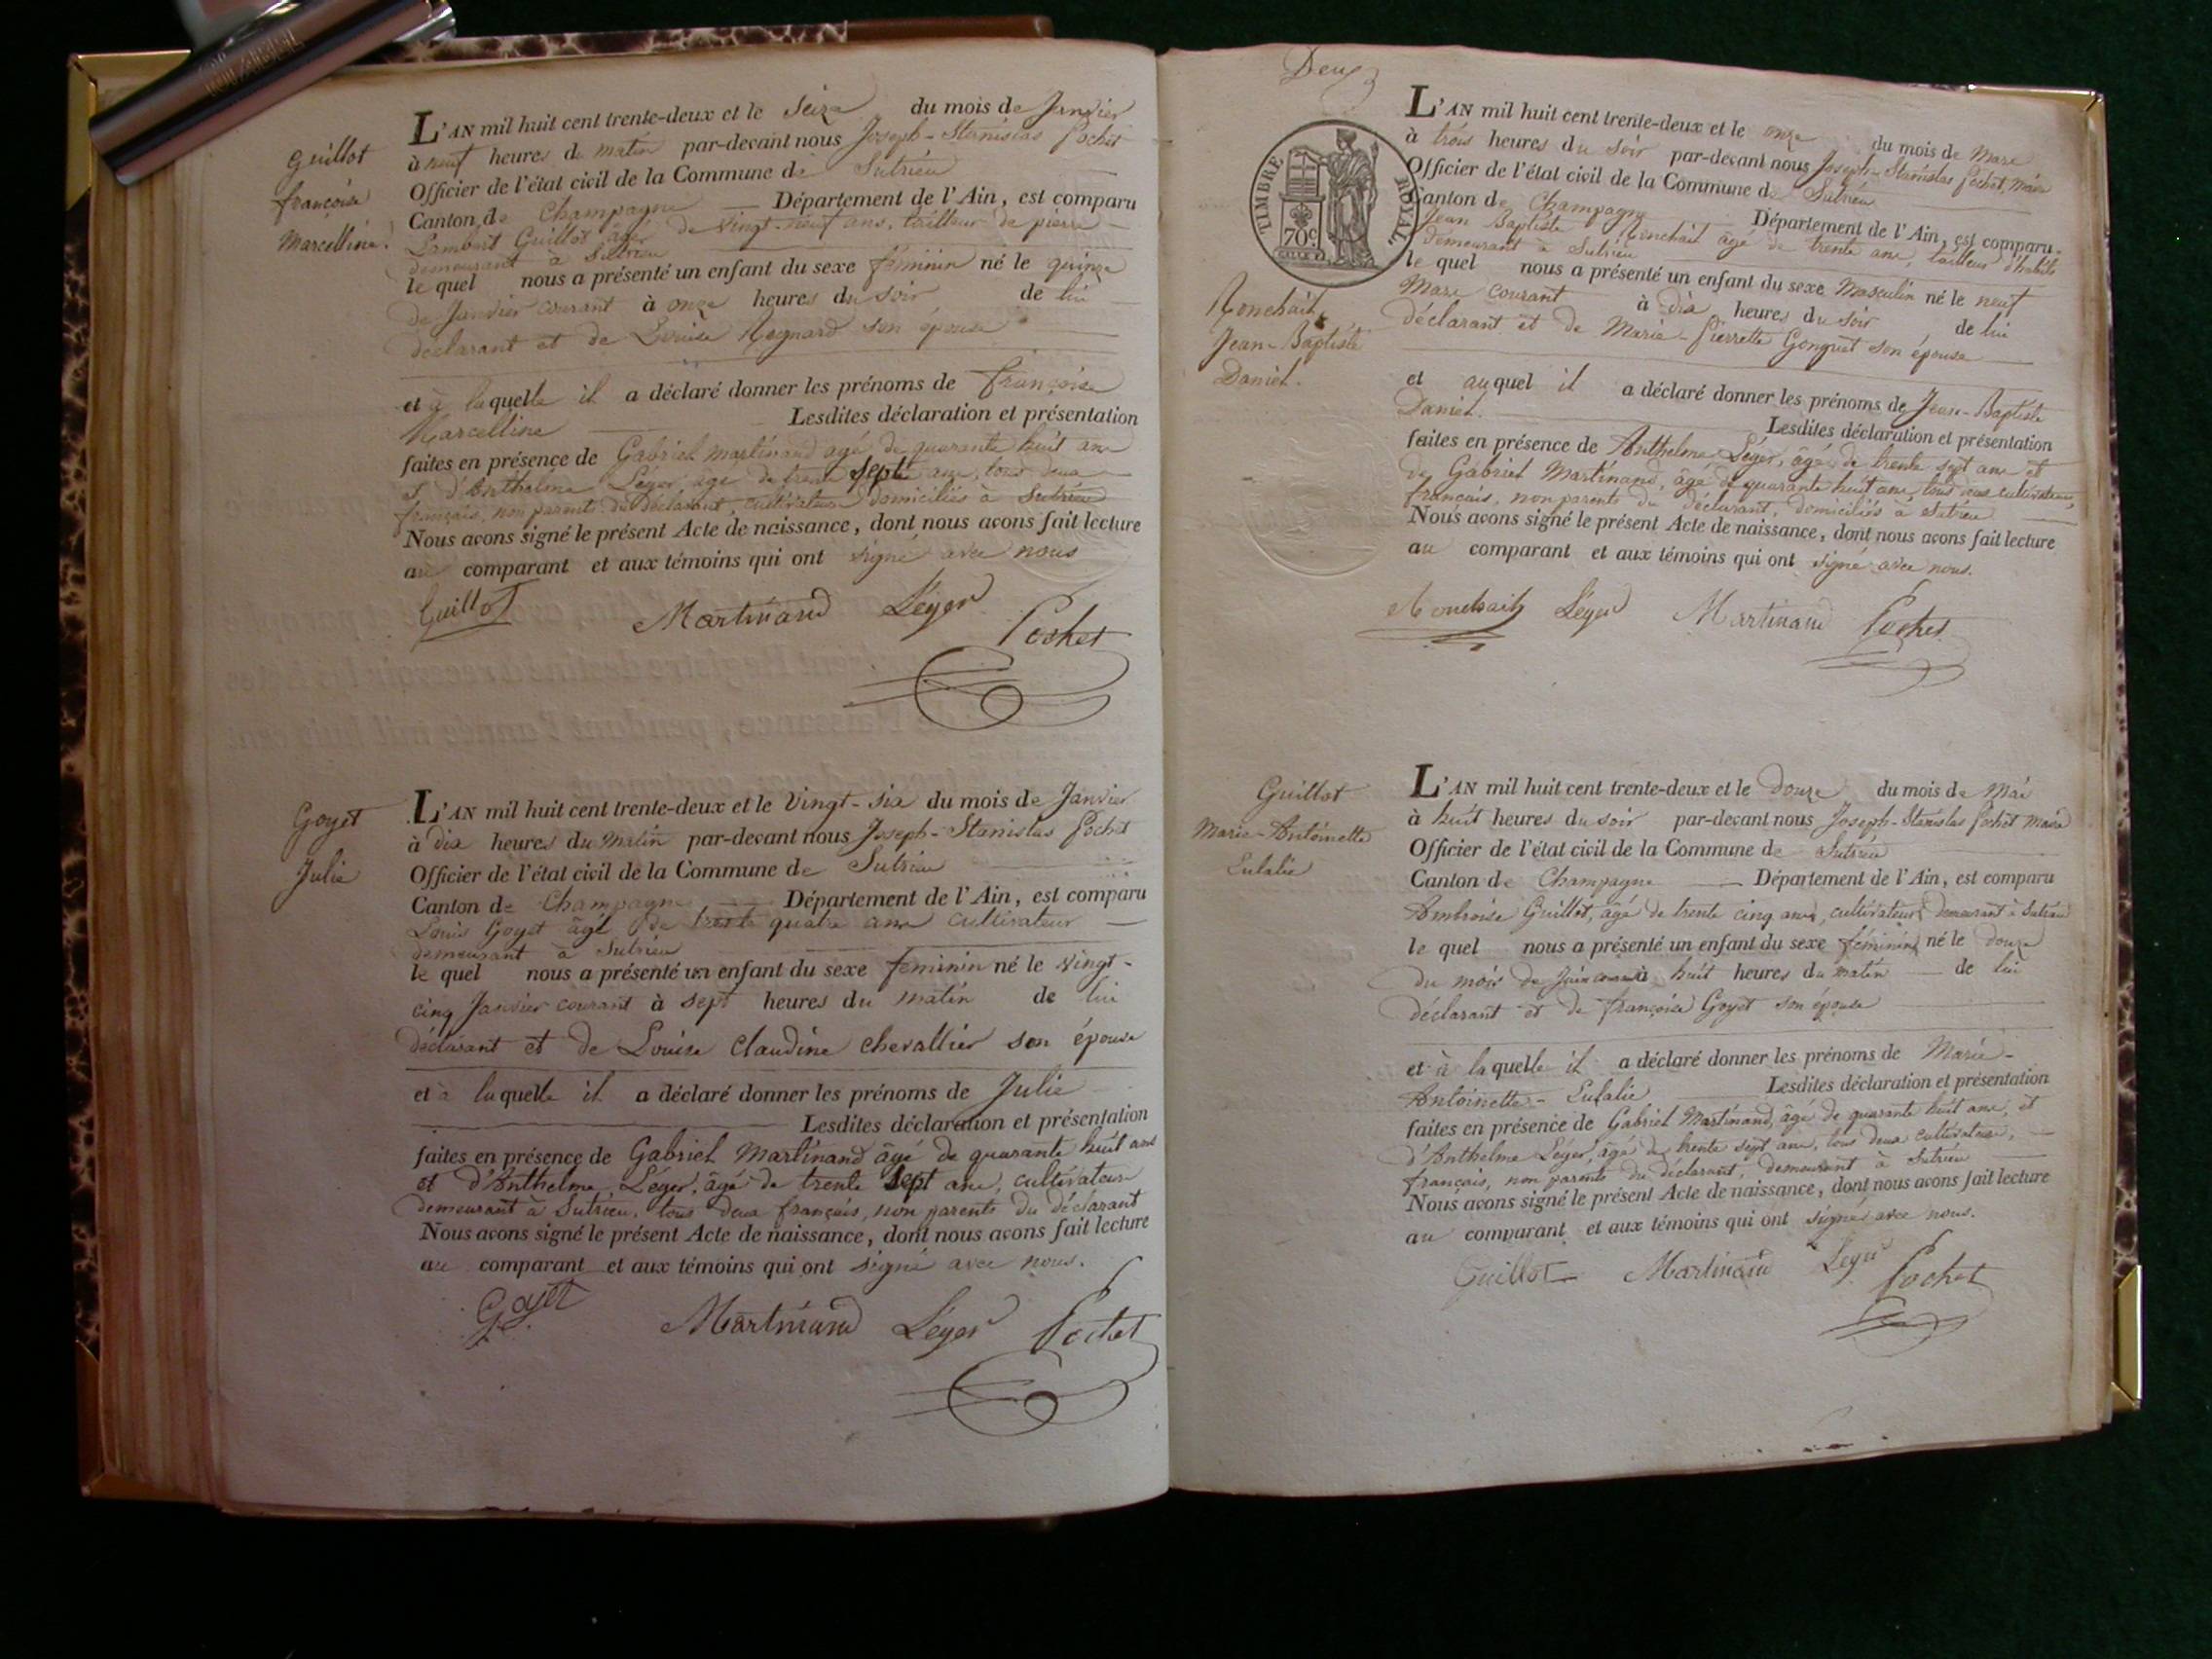 Guillot
françoise
Marcelline.
L'AN mil huit cent trente-deux et le Seize du mois de Janvier
à neuf heures du matin par-devant nous Joseph-Stanislas Pochet
Officier de l'état civil de la Commune de Sutrieu
Canton de Champagne Département de l'Ain, est comparu
Lambert Guillot âgé de vingt-neuf ans, tailleur de pierre
demeurant à Sutrieu
le quel nous a présenté un enfant du sexe féminin né le quinze
de Janvier courant à onze heures du soir de lui
déclarant et de Louise Rognard son épouse
et à laquelle il a déclaré donner les prénoms de françoise
Marcelline Lesdites déclaration et présentation
faites en présence de Gabriel Martinand agé de quarante huit ans
et d'Anthelme Léger âgé de trente sept ans, tous deux
français, non parents du déclarant, cultivateurs domiciliés à Sutrieu
Nous avons signé le présent Acte de naissance, dont nous avons fait lecture
au comparant et aux témoins qui ont signé avec nous
Guillot Martinand Léger Pochet
Goyet
Julie
L'AN mil huit cent trente-deux et le Vingt-six du mois de Janvier
à dix heures du matin par-devant nous Joseph-Stanislas Pochet
Officier de l'état civil de la Commune de Sutrieu
Canton de Champagne Département de l'Ain, est comparu
Louis Goyet âgé de trente quatre ans cultivateur
demeurant à Sutrieu
le quel nous a présenté un enfant du sexe feminin né le vingt-
cinq Janvier courant à sept heures du matin de lui
déclarant et de Louise Claudine chevallier son épouse
et à laquelle il a déclaré donner les prénoms de Julie
Lesdites déclaration et présentation
faites en présence de Gabriel Martinand âgé de quarante huit ans
et d'Anthelme Léger, âgé de trente sept ans, cultivateurs
demeurant à Sutrieu, tous deux français, non parents du déclarant
Nous avons signé le présent Acte de naissance, dont nous avons fait lecture
au comparant et aux témoins qui ont signé avec nous.
Goyet Martinand Léger Pochet
Deux
TIMBRE ROYAL
70c
Ronchail
Jean-Baptiste
Daniel.
L'AN mil huit cent trente-deux et le onze du mois de Mars
à trois heures du soir par-devant nous Joseph-Stanislas Pochet, Maire
Officier de l'état civil de la Commune de Sutrieu
Canton de Champagne Département de l'Ain, est comparu
Jean Baptiste Ronchail âgé de trente ans, tailleur d'habits
demeurant à Sutrieu
le quel nous a présenté un enfant du sexe Masculin né le neuf
Mars courant à dix heures du soir de lui
déclarant et de Marie-Pierrette Gonguet son épouse
et auquel il a déclaré donner les prénoms de Jean-Baptiste
Daniel. Lesdites déclaration et présentation
faites en présence de Anthelme Léger, âgé de trente sept ans et
de Gabriel Martinand, âgé de quarante huit ans, tous deux cultivateurs,
français, non parents du déclarant, domiciliés à Sutrieu
Nous avons signé le présent Acte de naissance, dont nous avons fait lecture
au comparant et aux témoins qui ont signé avec nous.
Ronchail Léger Martinand Pochet
Guillot
Marie-Antoinette
Eulalie
L'AN mil huit cent trente-deux et le douze du mois de Mai
à huit heures du soir par-devant nous Joseph-Stanislas Pochet Maire
Officier de l'état civil de la Commune de Sutrieu
Canton de Champagne Département de l'Ain, est comparu
Ambroise Guillot, âgé de trente cinq ans, cultivateur demeurant à Sutrieu
le quel nous a présenté un enfant du sexe féminin né le douze
du mois de à huit heures du matin de lui
déclarant et de françoise Goyet son épouse
et à laquelle il a déclaré donner les prénoms de Marie-
Antoinette-Eulalie Lesdites déclaration et présentation
faites en présence de Gabriel Martinand, âgé de quarante huit ans, et
d'Anthelme Léger, âgé de trente sept ans, tous deux cultivateurs,
français, non parents du déclarant, demeurant à Sutrieu
Nous avons signé le présent Acte de naissance, dont nous avons fait lecture
au comparant et aux témoins qui ont signé avec nous.
Guillot Martinand Léger Pochet